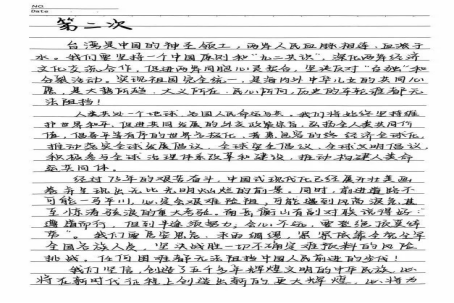 NO.
Date
第二次
台湾是中国的神圣领土，两岸人民血脉相连，血浓于
水。我们要坚持一个中国原则和"九二共识"，深化两岸经济
文化交流合作，促进两岸同胞心灵契合，坚决反对"台独"和
分裂活动。实现祖国完全统一，是海内外中华儿女的共同心
愿，是大势所趋、大义所在、民心所向，历史的车轮谁都无
法阻挡！
人类共处一个地球，各国人民命运与共。我们将始终坚持维
护世界和平，促进共同发展的外交政策宗旨，弘扬全人类共同价
值，倡导平等有序的世界多极化，普惠包容的经济全球化，
推动落实全球发展倡议、全球安全倡议、全球文明倡议，
积极参与全球治理体系改革和建设，推动构建人类命
运共同体。
经过75年的艰苦奋斗，中国式现代化已经展开壮美画
卷并呈现出无比光明灿烂的前景。同时，前进道路不
可能一马平川，必定会有艰难险阻，可能遇到风高浪急甚
至惊涛骇浪的重大考验。
我们要居安思危、未雨绸缪，紧紧依靠全党全军
全国各族人民，坚决战胜一切不确定难预料的风险
挑战。任何困难都无法阻挡中国人民前进的步伐！
我们坚信，创造了五千多年辉煌文明的中华民族，必
将在新时代新征程上创造出新的更大辉煌，必将为